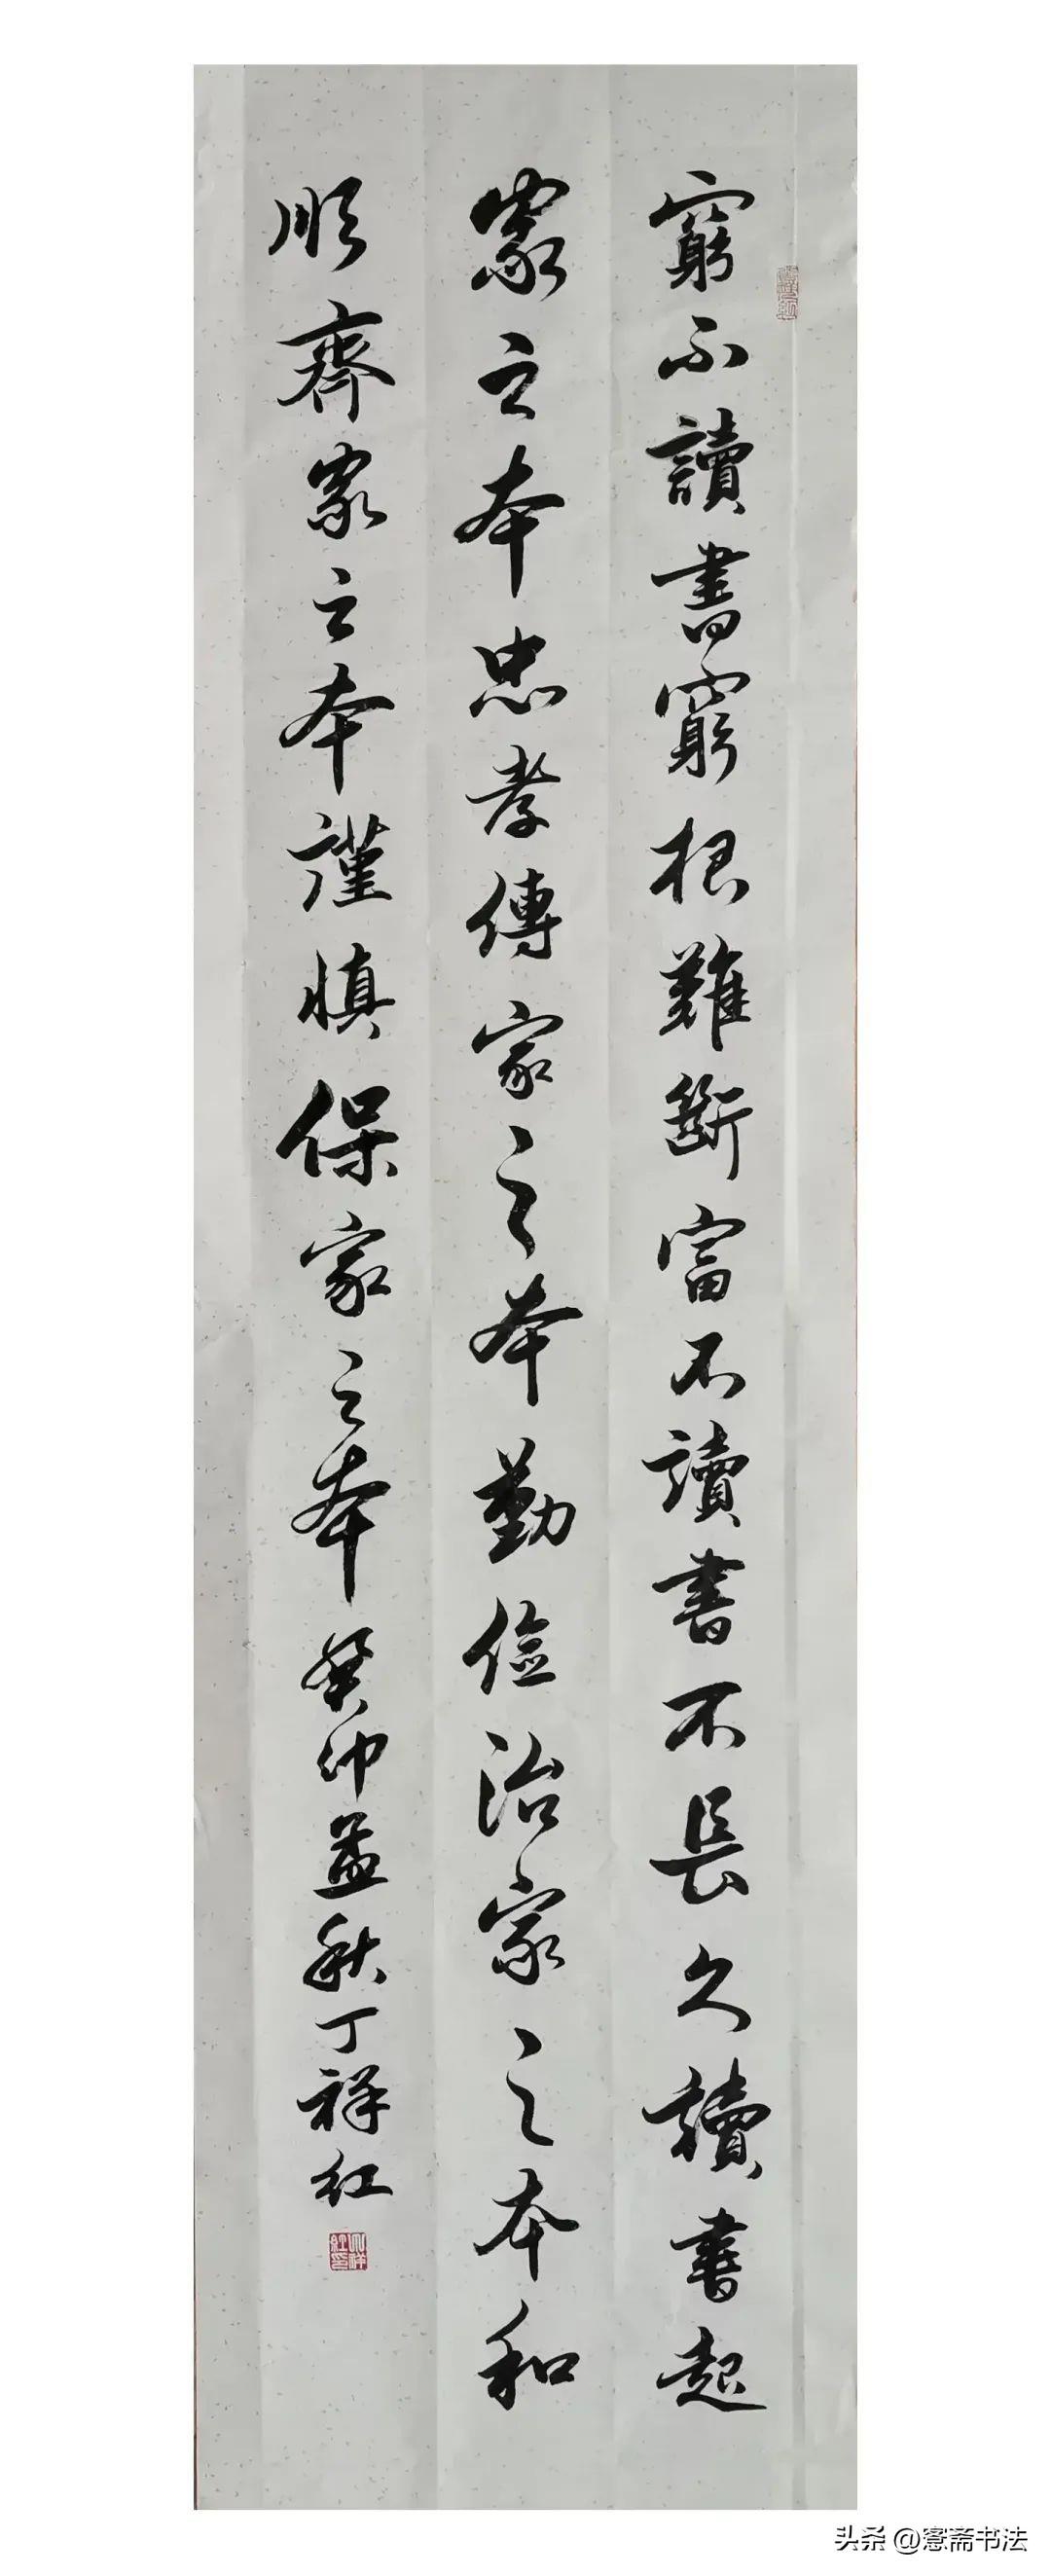 窮不讀書窮根難斷富不讀書不長久讀書起
家之本忠孝傳家之本勤儉治家之本和
順齊家之本謹慎保家之本癸卯孟秋丁祥红
头条 @窓斋书法